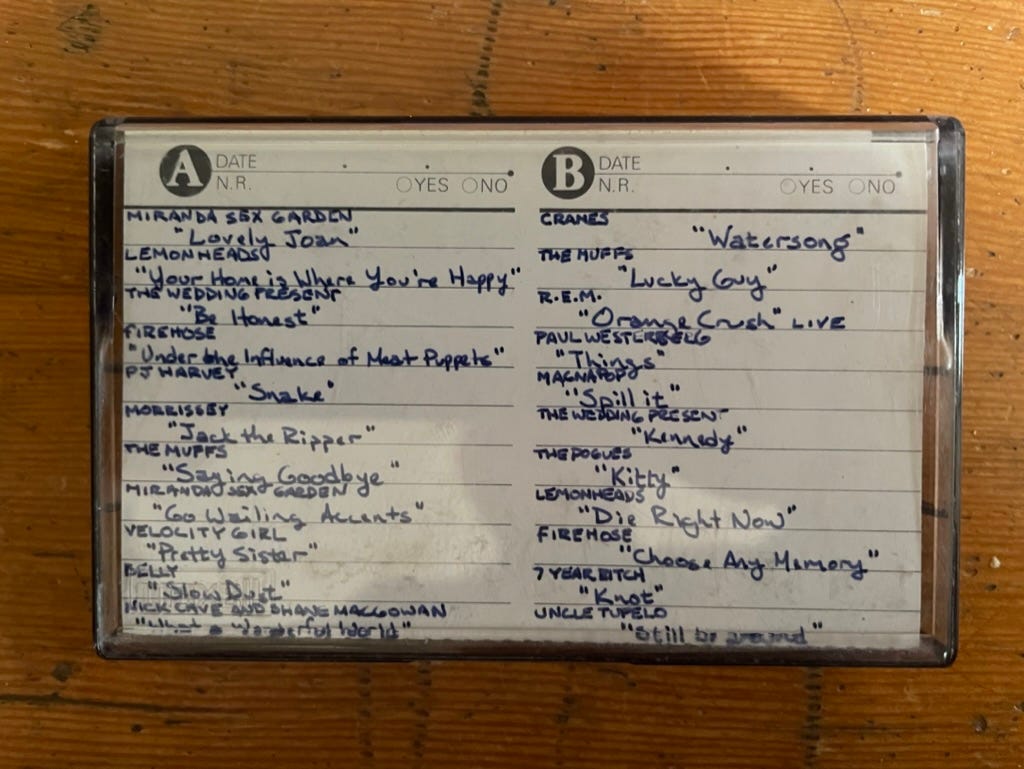 A DATE
N.R. YES NO
MIRANDA SEX GARDEN
"Lovely Joan"
LEMONHEADS
"Your Home is Where You're Happy"
THE WEDDING PRESENT
"Be Honest"
FIREHOSE
"Under the Influence of Meat Puppets"
PJ HARVEY
"Snake"
MORRISSEY
"Jack the Ripper"
THE MUFFS
"Saying Goodbye"
MIRANDA SEX GARDEN
"Go Wailing Accents"
VELOCITY GIRL
"Pretty Sister"
BELLY
"Slow Dust"
NICK CAVE AND SHANE MACGOWAN
"What a Wonderful World"
B DATE
N.R. YES NO
CRANES
"Watersong"
THE MUFFS
"Lucky Guy"
R.E.M.
"Orange Crush" LIVE
PAUL WESTERBERG
"Things"
MAGNAPOP
"Spill it"
THE WEDDING PRESENT
"Kennedy"
THE POGUES
"Kitty"
LEMONHEADS
"Die Right Now"
FIREHOSE
"Choose Any Memory"
7 YEAR BITCH
"Knot"
UNCLE TUPELO
"Still be around"